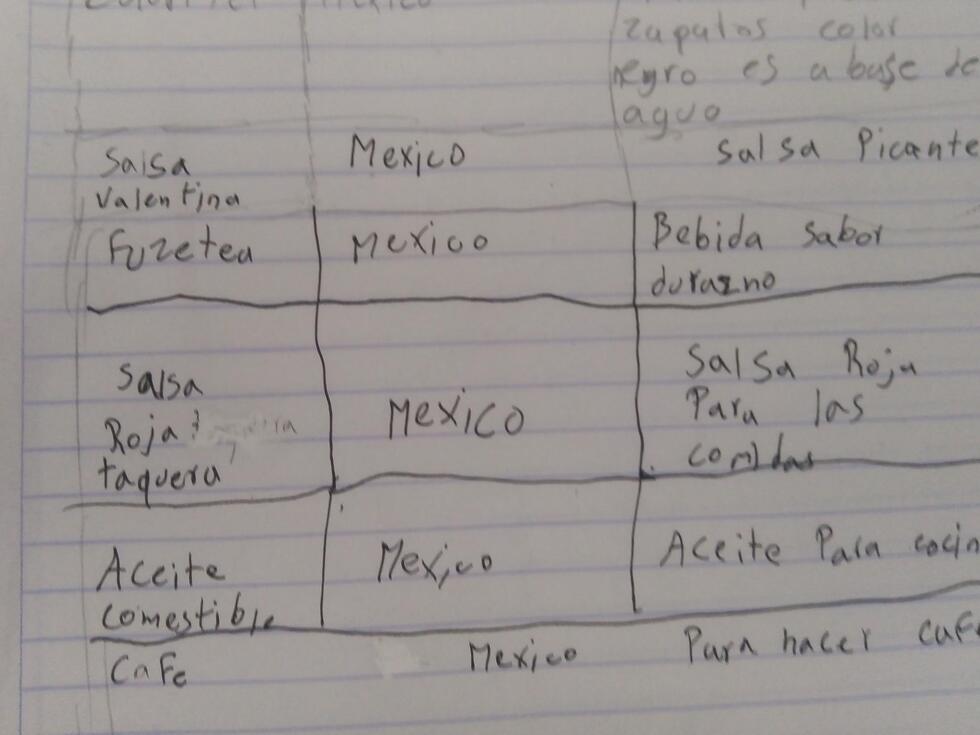 Mexico
zapatos color
negro es a base de
agua
Salsa Mexico Salsa Picante
Valentina
Fuzetea Mexico Bebida sabor
durazno
Salsa Roja
Salsa Para las
Roja Mexico comidas
taquera
Aceite Mexico Aceite Para cocin
comestible
Cafe Mexico Para hacer cafe